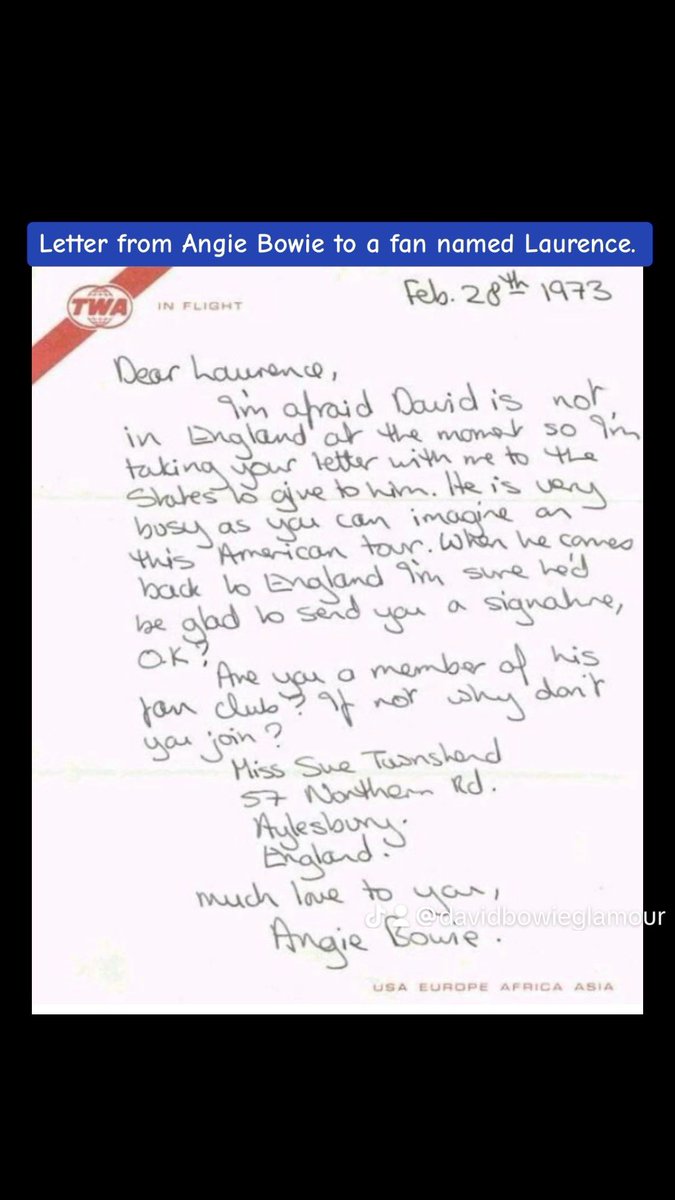 Letter from Angie Bowie to a fan named Laurence.
TWA IN FLIGHT
Feb. 28th 1973
Dear Laurence,
I'm afraid David is not
in England at the momet so I'm
taking your letter with me to the
States to give to him. He is very
busy as you can imagine on
this American tour. When he comes
back to England I'm sure he'd
be glad to send you a signature,
O.K?
Are you a member of his
fan club? If not why don't
you join?
Miss Sue Townshend
57 Northern Rd.
Aylesbury.
England.
much love to you,
@davidbowieglamour
Angie Bowie.
USA EUROPE AFRICA ASIA